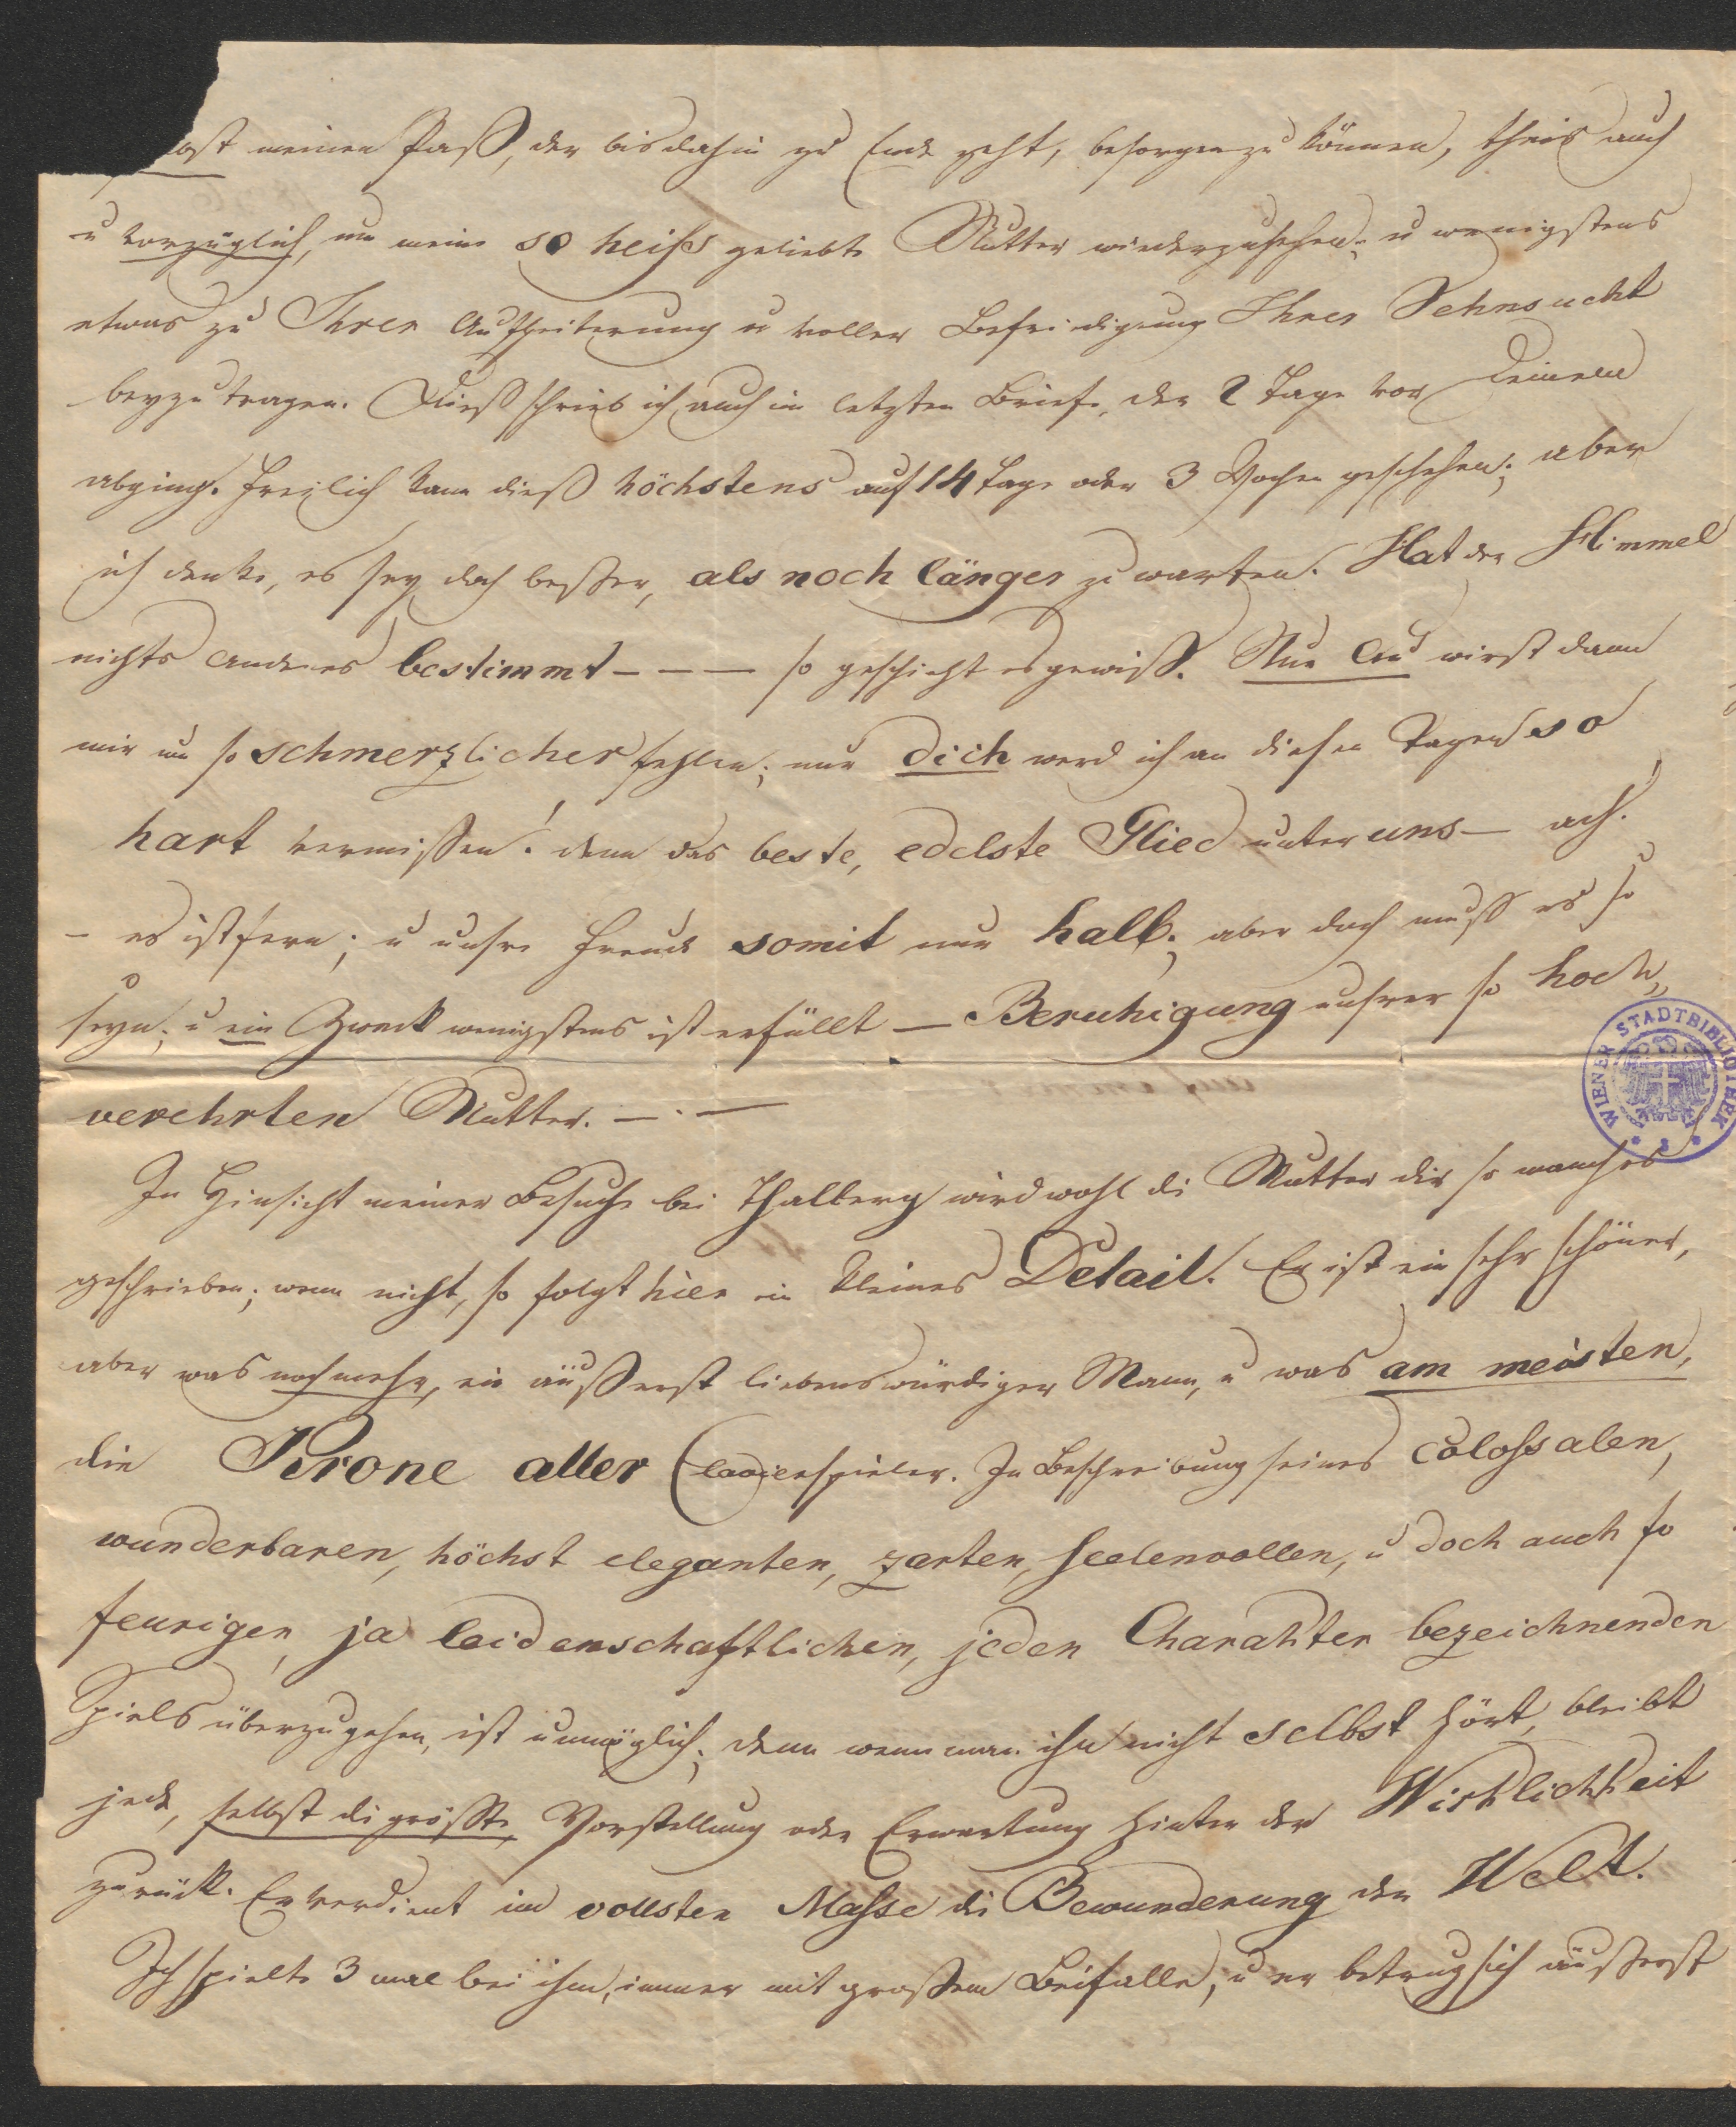 meinen Paß, der bis dahin zu Ende geht, besorgen zu können, theils auch
u vorzüglich, um meine so heiß geliebte Mutter wiederzusehen, u wenigstens
etwas zu Ihrer Aufheiterung u voller Befriedigung Ihrer Sehnsucht
beyzutragen. Dieß schrieb ich auch im letzten Briefe, der 2 Tage vor Deinem
abging. Freylich kann dieß höchstens auf 14 Tage oder 3 Wochen geschehen; aber
ich denke, es sey doch besser, als noch länger zu warten. Hat der Himmel
nichts anderes bestimmt – – – so geschieht es gewiß. Nur Du wirst dann
mir um so schmerzlicher fehlen; nur dich werd ich an diesen Tagen so
hart vermissen! denn das beste, edelste Glied unter uns – ach!
– es ist fern; u unsre Freude somit nur halb; aber doch muß es so
seyn; u ein Zweck wenigstens ist erfüllt – Beruhigung unsrer so hoch„
verehrten Mutter. – . –
In Hinsicht meiner Besuche bei Thalberg wird wohl di Mutter dir so manches
geschrieben; wenn nicht, so folgt hier ein kleines Detail. Er ist ein sehr schöner,
aber was noch mehr, ein äußerst liebenswürdiger Mann, u was am meisten,
die Krone aller Clavierspieler. In Beschreibung seines colossalen,
wunderbaren, höchst eleganten, zarten, seelenvollen, u doch auch so
feurigen, ja leidenschaftlichen, jeden Charakter bezeichnenden
Spiels überzugehen, ist unmöglich; denn wenn man ihn nicht selbst hört, bleibt
jede, selbst di größte, Vorstellung oder Erwartung hinter der Wirklichkeit
zurück. Er verdient im vollsten Masse di Bewunderung der Welt.
Ich spielte 3 mal bei ihm, immer mit großem Beifalle, u er betrug sich äußerst
WIENER STADTBIBLIOTHEK